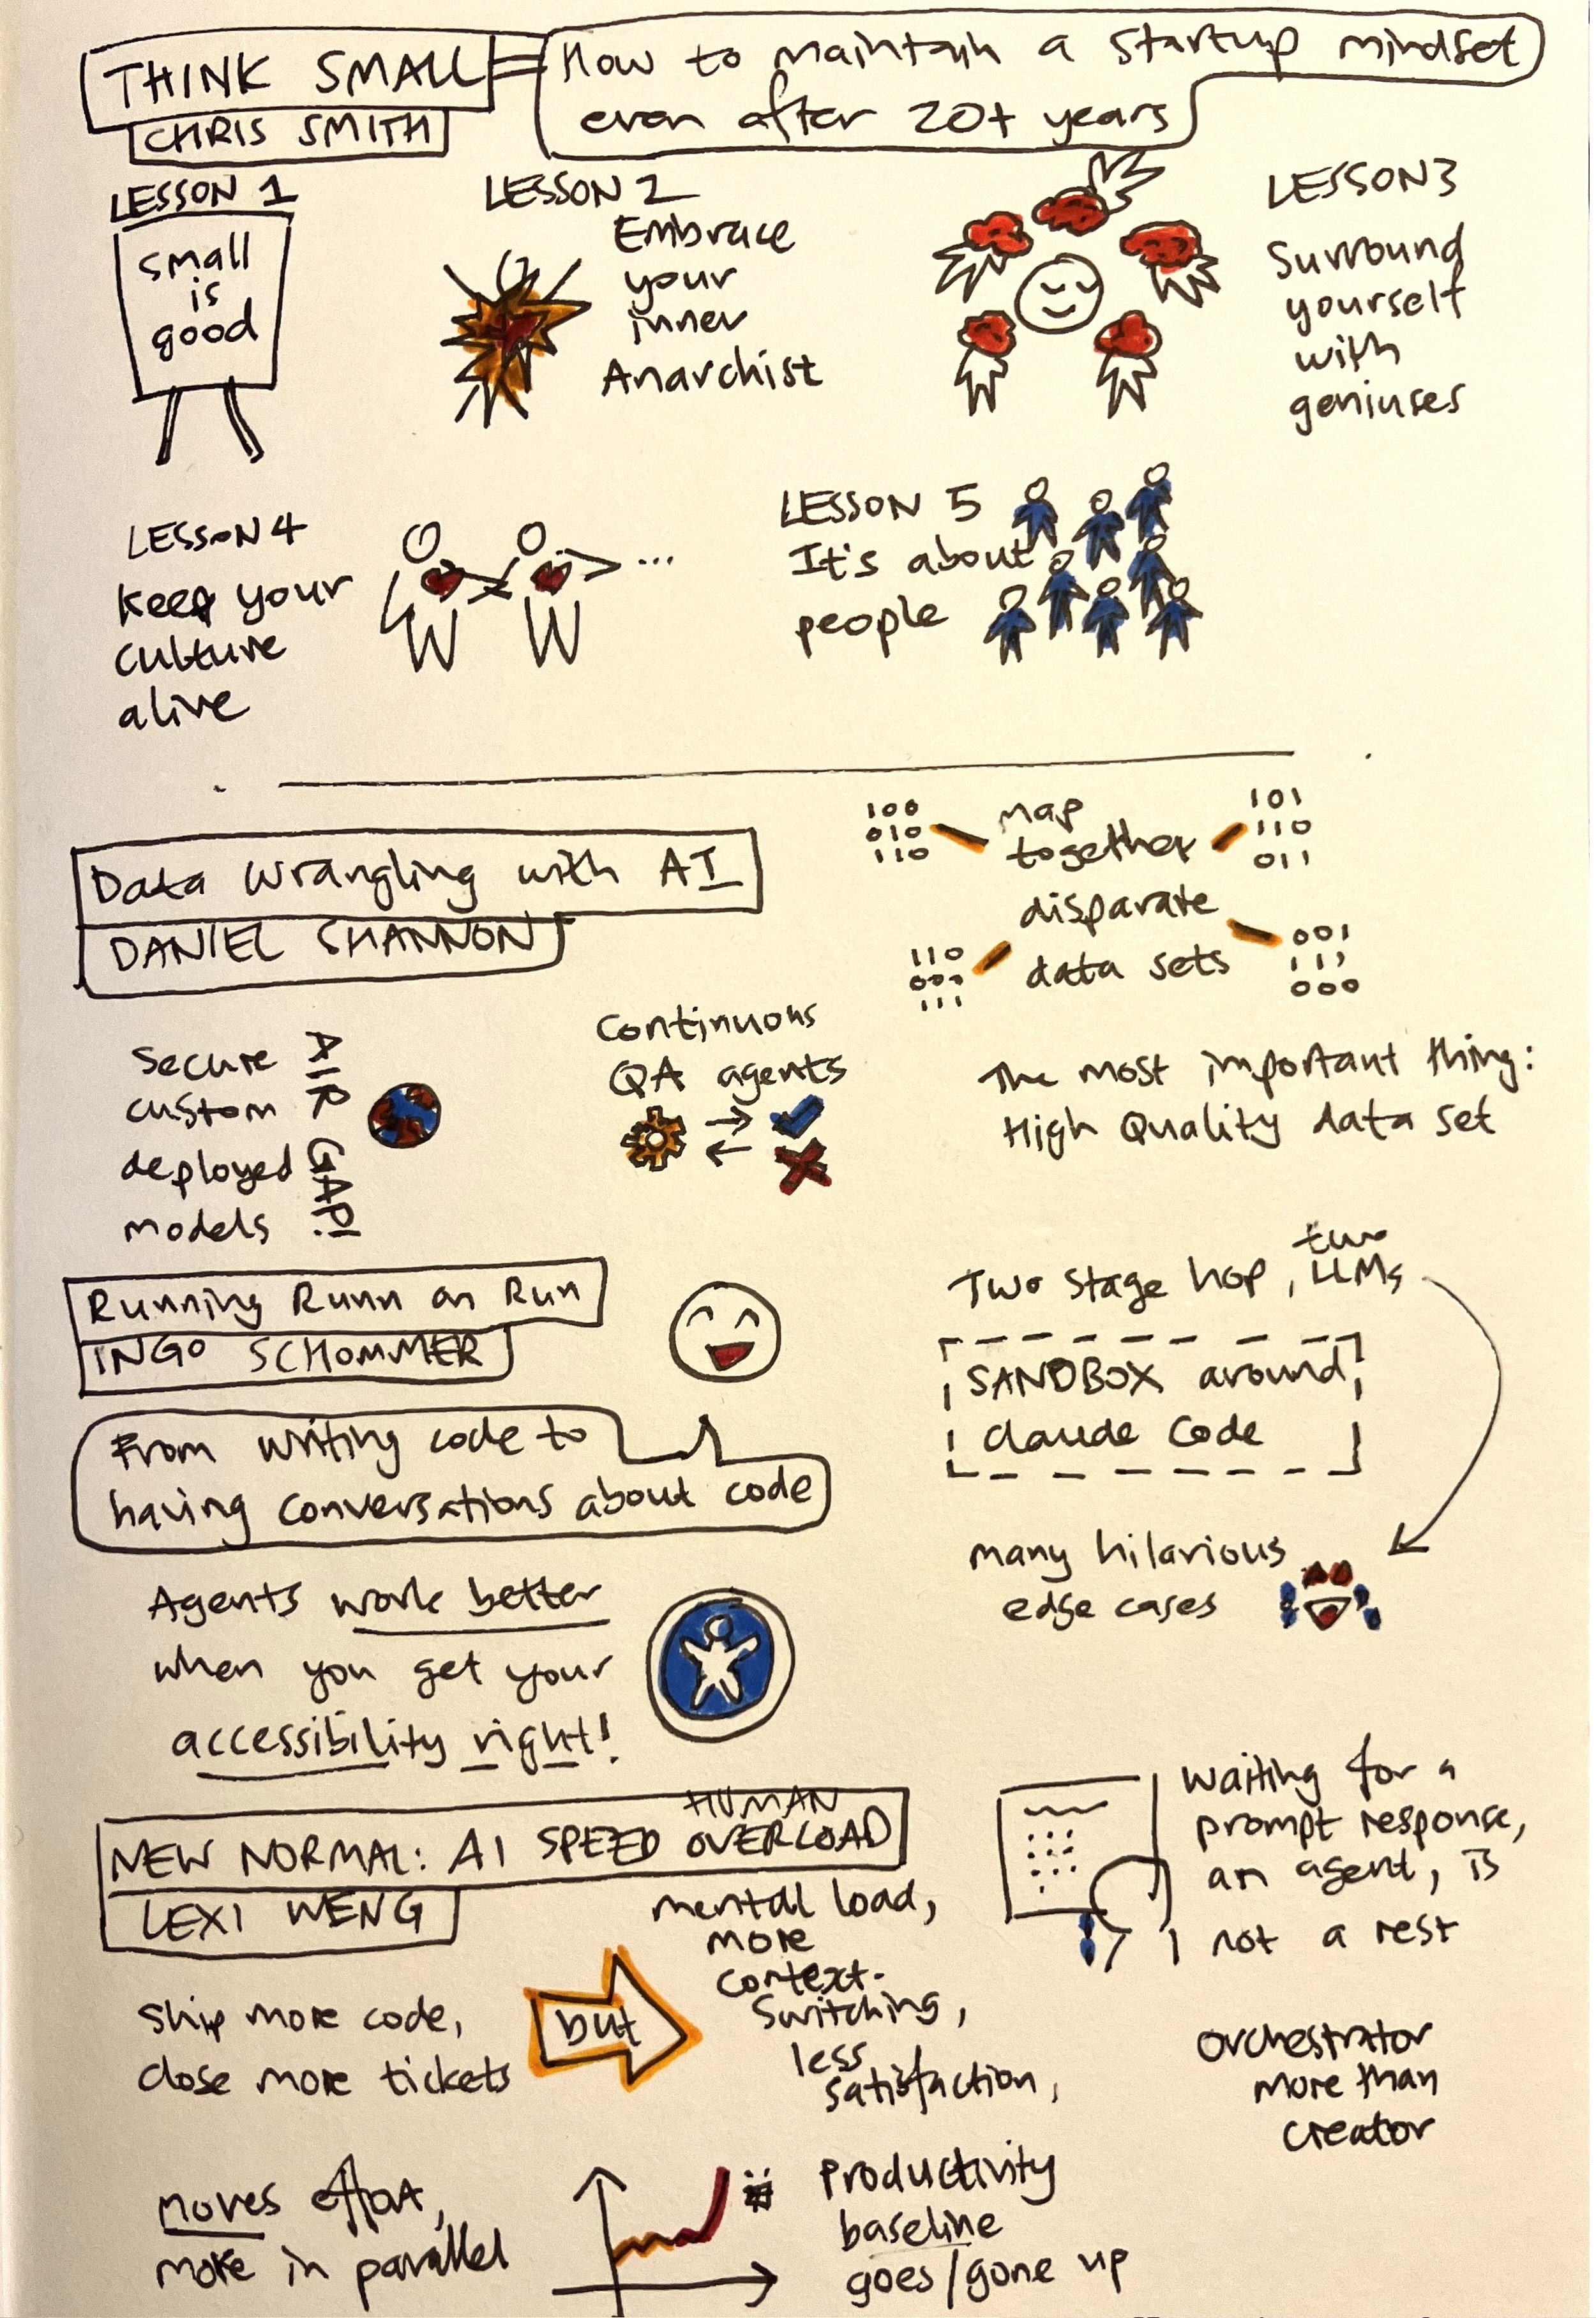 THINK SMALL =
CHRIS SMITH
How to maintain a startup mindset
even after 20+ years
LESSON 1
small
is
good
LESSON 2
Embrace
your
inner
Anarchist
LESSON 3
Surround
yourself
with
geniuses
LESSON 4
Keep your
culture
alive
...
LESSON 5
It's about
people
Data Wrangling with AI
DANIEL SHANNON
100
010
110
map
together
disparate
data sets
101
110
011
110
000
111
001
111
000
Secure
custom
deployed
models
AIR GAP!
Continuous
QA agents
The most important thing:
High Quality data set
Running Runn on Run
INGO SCHOMMER
From writing code to
having conversations about code
Agents work better
when you get your
accessibility right!
Two stage hop, two LLMs
SANDBOX around
Claude Code
many hilarious
edge cases
NEW NORMAL: AI SPEED HUMAN OVERLOAD
LEXI WENG
Ship more code,
close more tickets
but
mental load,
more
context-
switching,
less
satisfaction,
Waiting for a
prompt response,
an agent, is
not a rest
Orchestrator
more than
creator
moves effort,
more in parallel
Productivity
baseline
goes/gone up